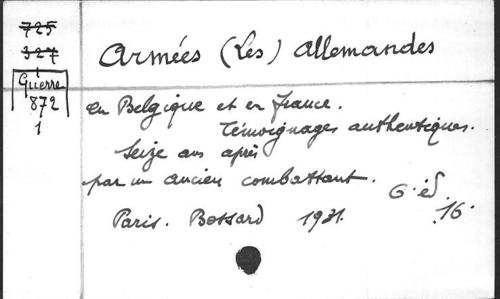 725
327
Guerre
872
1
Armées (Les) allemandes
en Belgique et en France.
Témoignages authentiques.
Seize ans après
par un ancien combattant.
6. éd.
Paris. Bossard 1931. 16.